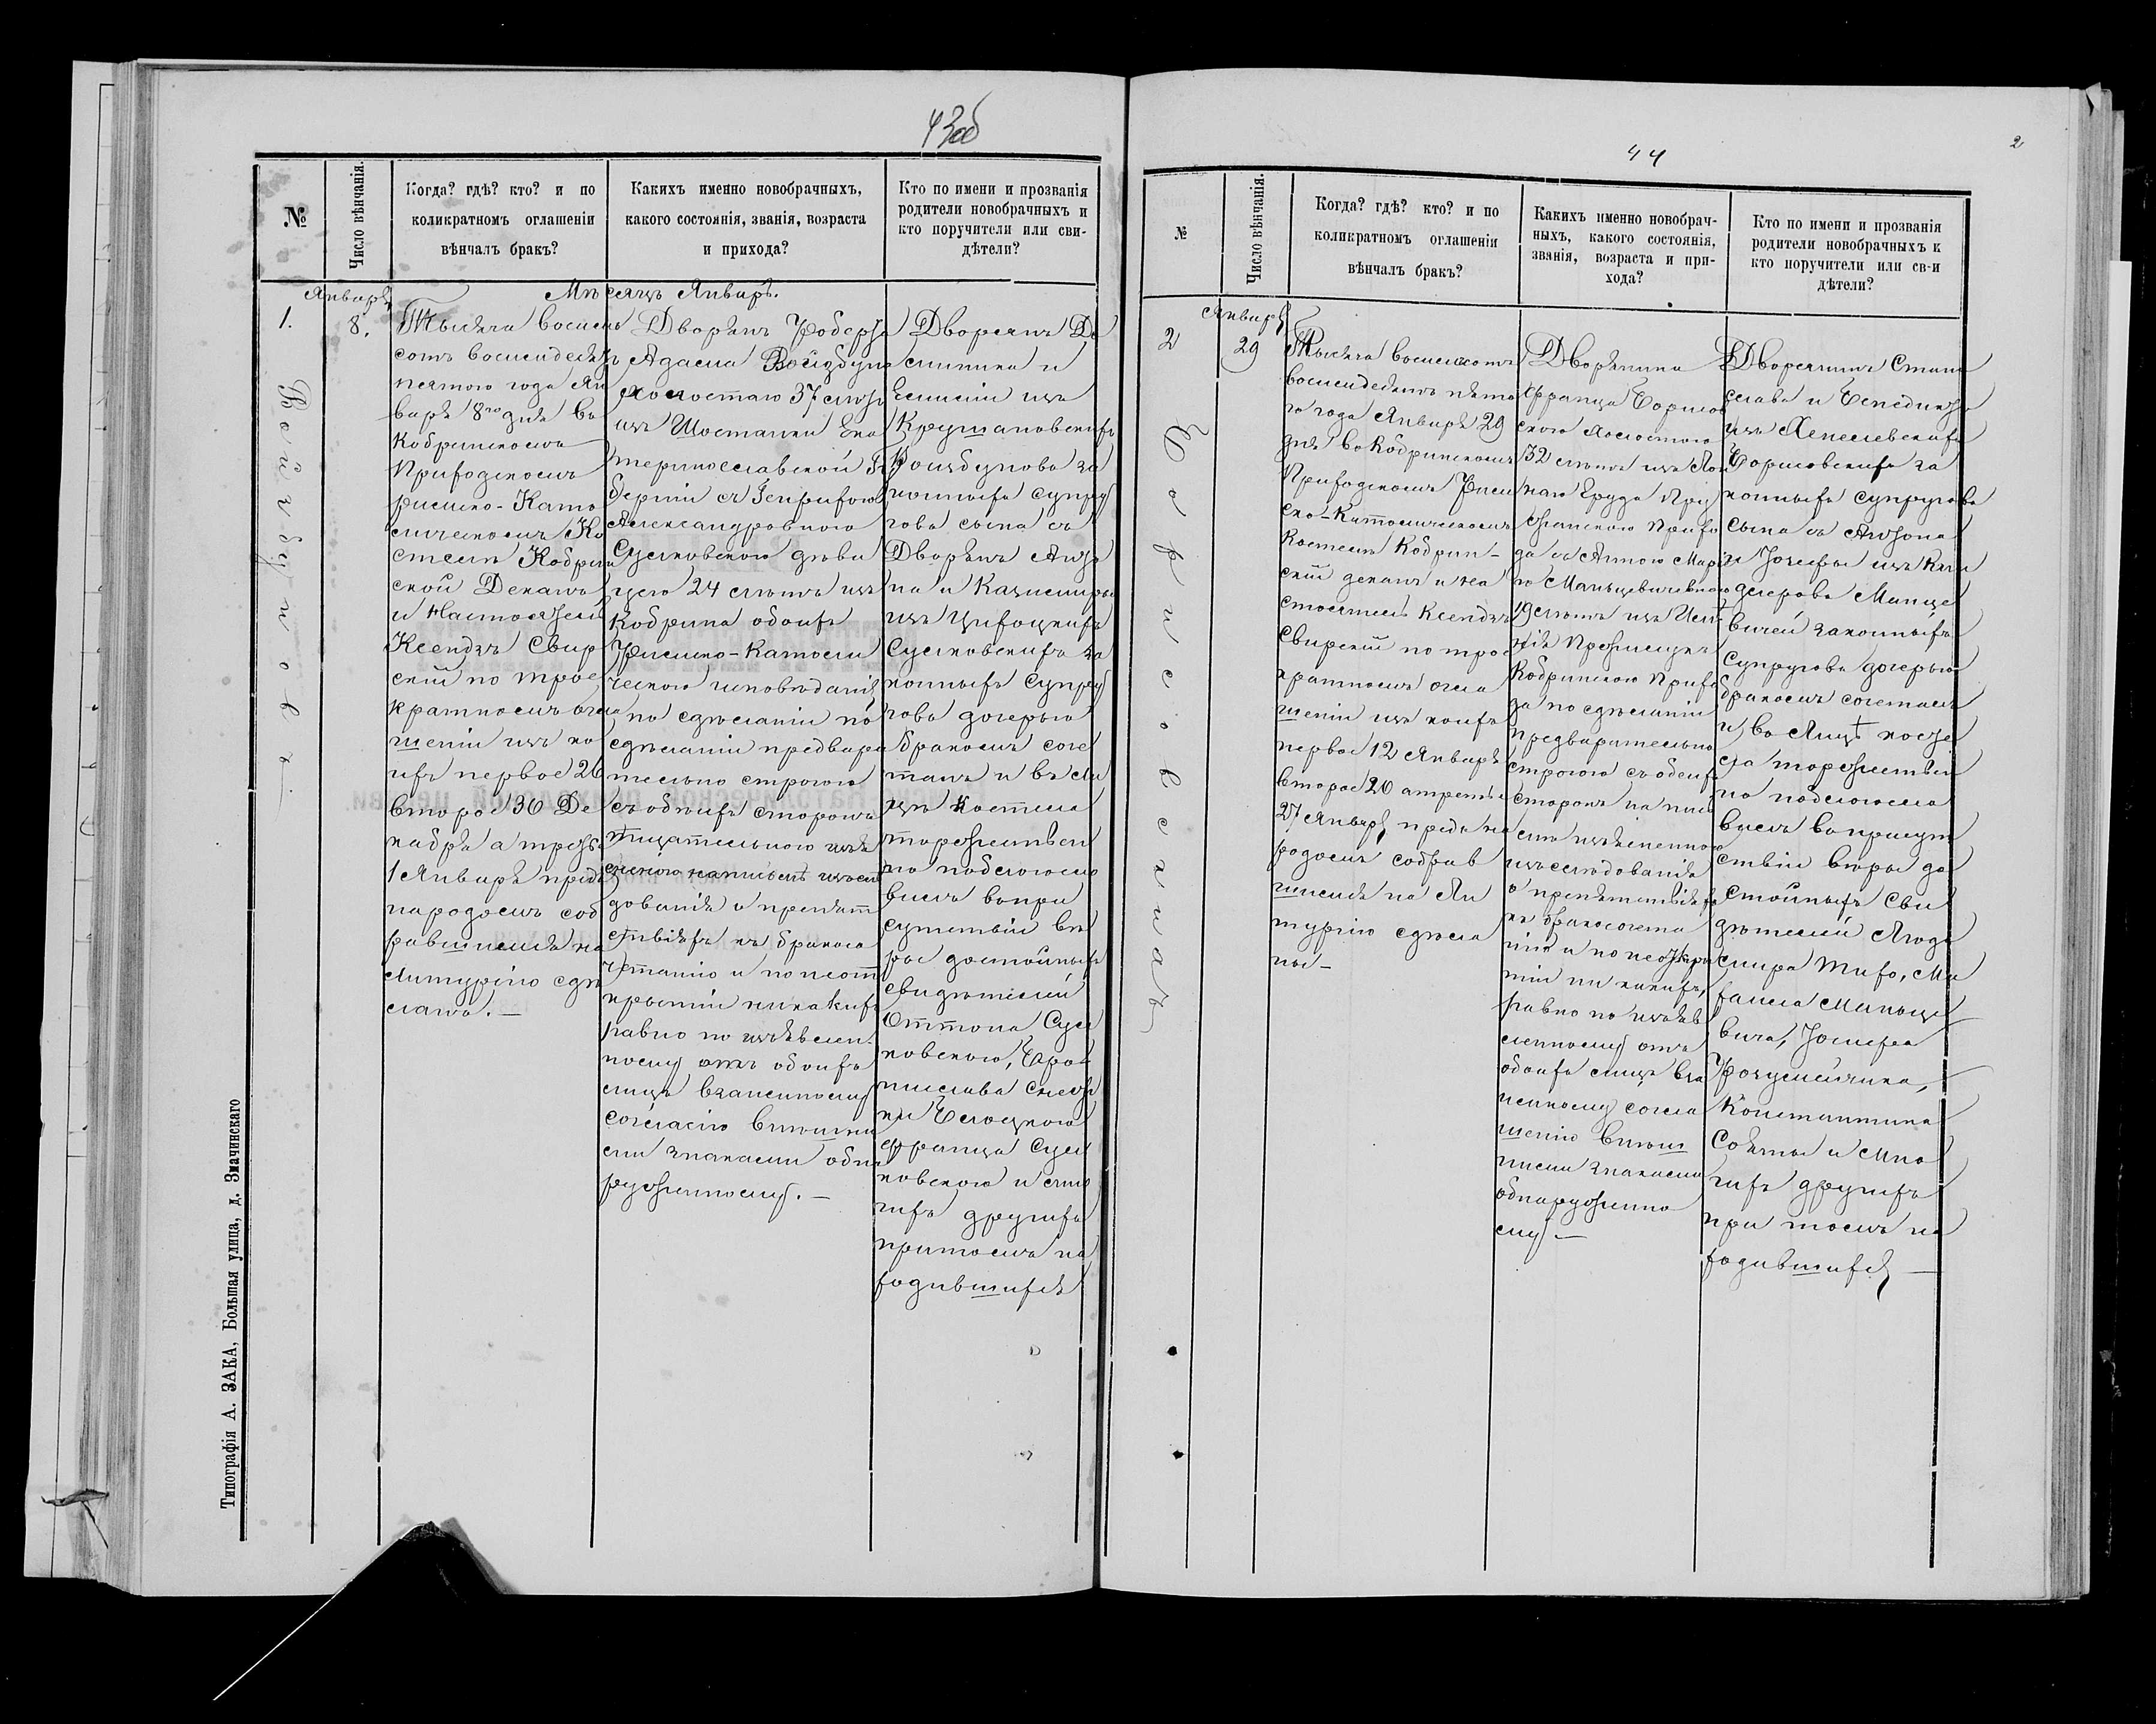 43об
№
Число вѣнчанія.
Когда? гдѣ? кто? и по
коликратномъ оглашеніи
вѣнчалъ бракъ?
Какихъ именно новобрачныхъ,
какого состоянія, званія, возраста
и прихода?
Кто по имени и прозванія
родители новобрачныхъ и
кто поручители или сви-
дѣтели?
Мѣсяцъ Январь.
1.
Январь
8.
Войзбуновъ
Тысяча восемь
сотъ восемдесятъ
пятого года Ян
варя 8го дня въ
Кобринскомъ
Приходскомъ
римско-Като
лическомъ Ко
стелѣ Кобрин
ской Деканъ
и Настоятель
Ксендзъ Свир
скій по трое
кратномъ огла
шеніи изъ ко
ихъ первое 26
второе 30 Де
кабря а третье
1 Января предъ
народомъ соб
равшимся на
литургію сдѣ
лано.—
Дворянъ Роберта
Адама Войзбуна
холостаго 37 лѣтъ
изъ Шостакки Ека
теринославской Гу
берніи съ Генрихою
Александровною
Сулковскою дѣви
цею 24 лѣтъ изъ
Кобрина обоихъ
Римско-Католи
ческого исповѣданія
по сдѣланіи по
сдѣланіи предвари
тельно строгого
съ обѣихъ сторонъ
тщательного
изслѣ
дованія о препят
ствіяхъ къ бракосо
четанію и по неот
крытіи никакихъ
равно по изъявлен
ному отъ обоихъ
лицъ взаимному
согласію внѣшни
ми знаками обна
руженному.—
Дворянъ До
миника и
Емиліи изъ
Крушановскихъ
Воизбуновъ за
конныхъ супру
говъ сына съ
Дворянъ Анто
на и Казимиры
изъ Цихоцкихъ
Сулковскихъ за
конныхъ супру
говъ дочерью
бракомъ соче
талъ и въ ли
цѣ Костела
торжествен
но подсловно
вилъ въ при
сутствіи вѣ
ры достойныхъ
свидѣтелей
Оттона Сул
ковского,
Франца Сул
ковского и мно
гихъ другихъ
притомъ на
ходившихся
Типографія А. ЗАКА, Большая улица, д. Значинскаго
44
2
№
Число вѣнчанія.
Когда? гдѣ? кто? и по
коликратномъ оглашеніи
вѣнчалъ бракъ?
Какихъ именно новобрач-
ныхъ, какого состоянія,
званія, возраста и при-
хода?
Кто по имени и прозванія
родители новобрачныхъ к
кто поручители или св-и
дѣтели?
2
Январь
29
Тысяча восемсотъ
восемдесятъ пято
го года Января 29
дня въ Кобринскомъ
Приходскомъ Рим
ско-Католическомъ
Костелѣ Кобрин-
скій деканъ и на
стоятель Ксендзъ
Свирскій по трое
кратномъ огла
шеніи изъ коихъ
первое 12 Января
второе 20 а третье
27 Января предъ на
родомъ собрав
шимся на Ли
тургію сдѣла
ны—
Дворянина
Франца Борисов
ского холостого
32 лѣтъ изъ
Пру
жанского Прихо
да съ Анною Марі
ю Маньцевичевною
19 лѣтъ изъ
Кобринского Прихо
да по сдѣланіи
предварительно
строгого съ обеихъ
сторонъ
изслѣдованія
о препятствіяхъ
къ бракосочета
нію и по неоткры
тіи ни какихъ,
равно по изъяв
ленному отъ
обоихъ лицъ вза
имному согла
шенію внѣш
ними знаками
обнаруженно
му—
Дворянинъ Стани
слава и Бенедикты
Борисовскихъ за
конныхъ супруговъ
сына съ Антона
и Юзефы
Манце
вичей законныхъ
супруговъ дочерью
бракомъ сочеталъ
и въ Лицѣ косте
ла торжествен
но
вилъ въ присут
ствіи вѣры до
стойныхъ сви
дѣтелей
Ми
хаила Маньце
вича, Іосифа
Константина
и Мно
гихъ другихъ
при томъ на
ходившихся—